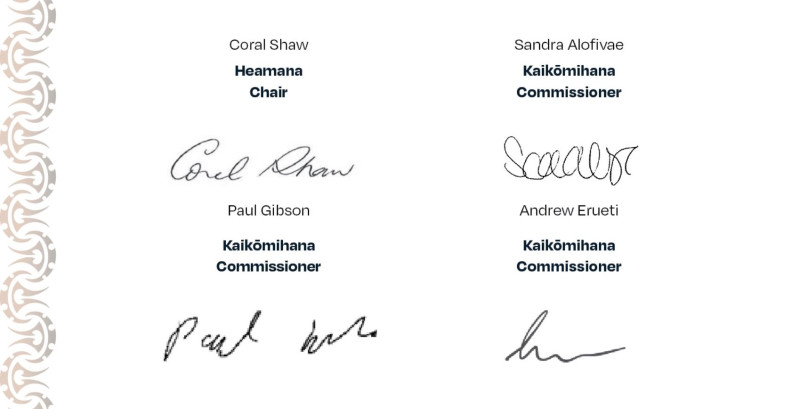 Coral Shaw
Heamana
Chair
Coral Shaw
Sandra Alofivae
Kaikōmihana
Commissioner
Paul Gibson
Kaikōmihana
Commissioner
Paul
Andrew Erueti
Kaikōmihana
Commissioner